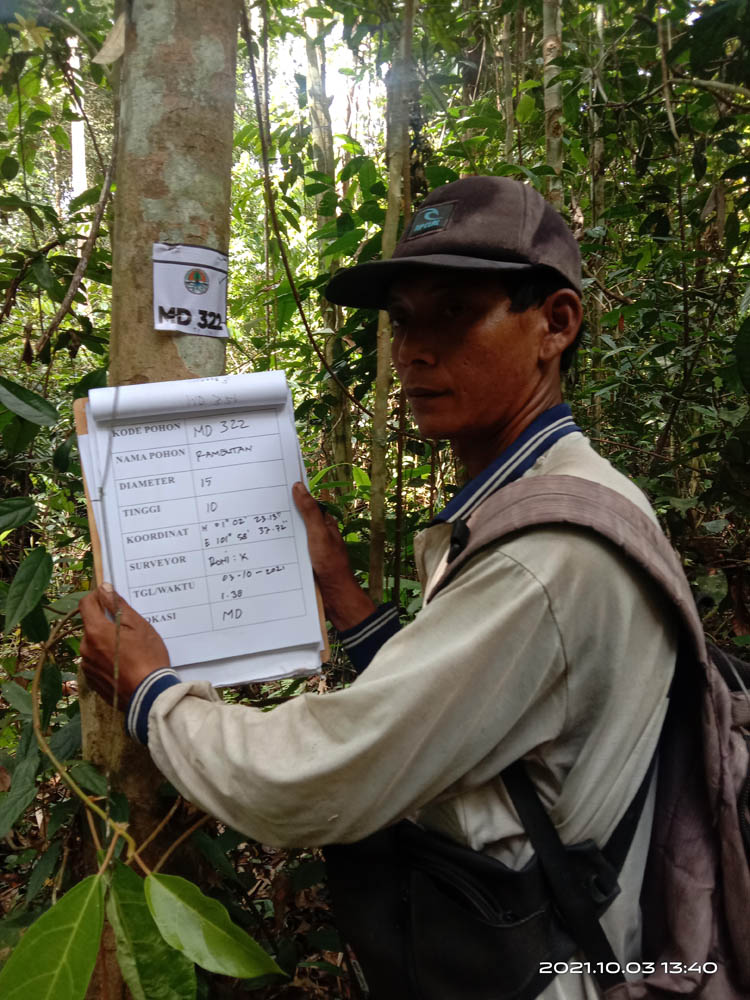 RIPCURL
MD 322
KODE POHON MD 322
NAMA POHON RAMBUTAN
DIAMETER 15
TINGGI 10
KOORDINAT N 01° 02' 23.13"
E 101° 58' 37.72"
SURVEYOR RONI : K
TGL/WAKTU 03-10-2021
1.38
OKASI MD
2021.10.03 13:40